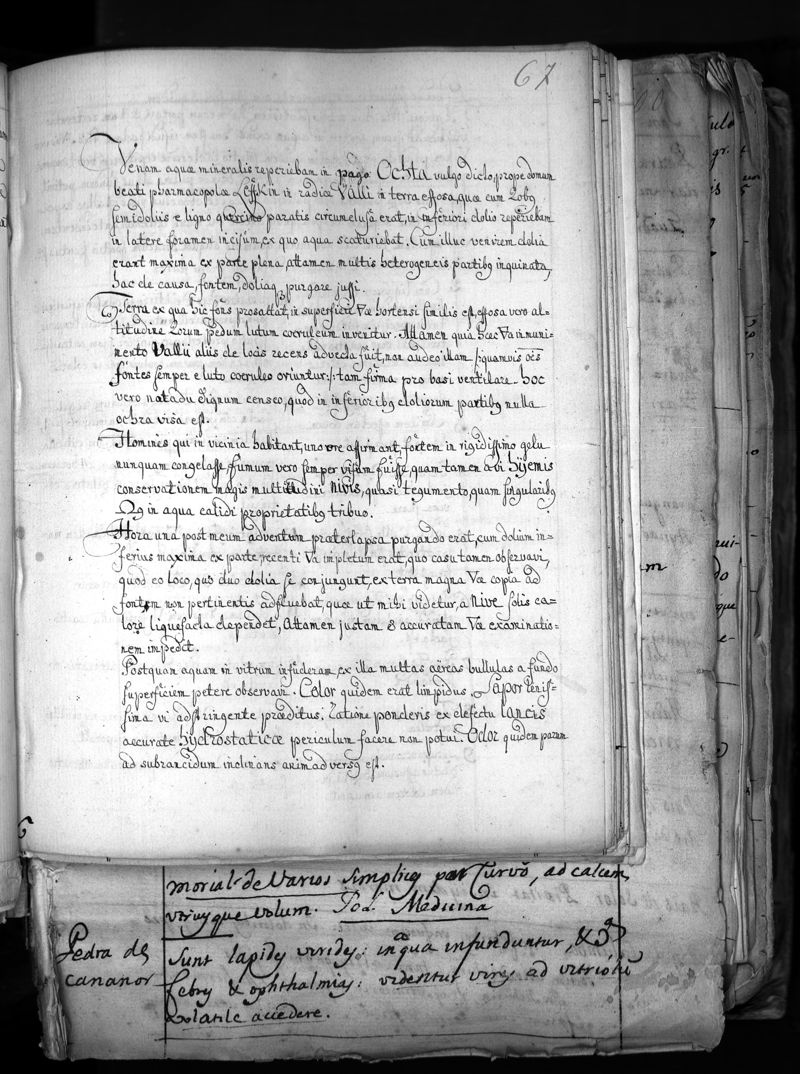 67
Venam aquæ mineralis reperiebam in pago Ochta vulgo dicto, prope domum
beati pharmacopolæ in radice Valli in terra effosa, quæ cum
semidoliis e ligno quercino paratis circumclusa erat, in inferiori dolio reperiebam
in latere foramen incisum, ex quo aqua scaturiebat. Cum illuc venirem dolia
erant maxima ex parte plena, attamen multis heterogeneis partibꝫ inquinata,
hac de causa, fontem, doliaqꝫ purgare jussi.
Terra ex qua hic fons prosaltat, in superficie hortensi similis est, effosa vero al-
titudine pedum lutum coeruleum invenitur. Attamen quia hæc in muni-
mento Vallii aliis de locis recens advecta fuit, non audeo illam /:quamvis oẽs
fontes semper e luto coeruleo oriuntur:/ tam firma pro basi ventilare. Hoc
vero notatu dignum censeo, quod in inferioribꝫ doliorum partibꝫ nulla
ochra visa est.
Homines qui in vicinia habitant, uno ore affirmant, fontem in rigidissimo gelu
nunquam congelasse, fumum vero semper visum fuisse, quam tamen
conservationem magis multitudini nivis, quasi tegumento, quam singularibꝫ
in aqua calidi proprietatibꝫ tribuo.
Hora una post meum adventum præterlapsa purgando erat, cum dolium in-
ferius maxima ex parte, recenti impletum erat, quo casu tamen observavi,
quod eo loco, quo duo dolia se conjungunt, ex terra magna copia ad
fontem non pertinentis adfluebat, quæ ut mihi videtur, a nive solis ca-
lore liquefacta dependet, Attamen justam & accuratam examinatio-
nem impedit.
Postquam aquam in vitrum infuderam, ex illa multas aëreas bullulas a fundo
superficiem petere observavi. Color quidem erat limpidus, Sapor lenis-
sima vi adstringente præditus; Ratione ponderis ex defectu lancis
accurate hydrostaticæ periculum facere non potui. Odor quidem parum
ad subrancidum inclinans animadversꝫ est.
morial. de Varios simplicꝫ Curvõ, ad calcem
utriusque volum. Medicina
Pedra de
Cananor
Sunt lapidꝫ viridꝫ: in aqua infunduntur, &
febrꝫ & ophthalmiꝫ: videntur ad vitriolũ
volatile accedere.